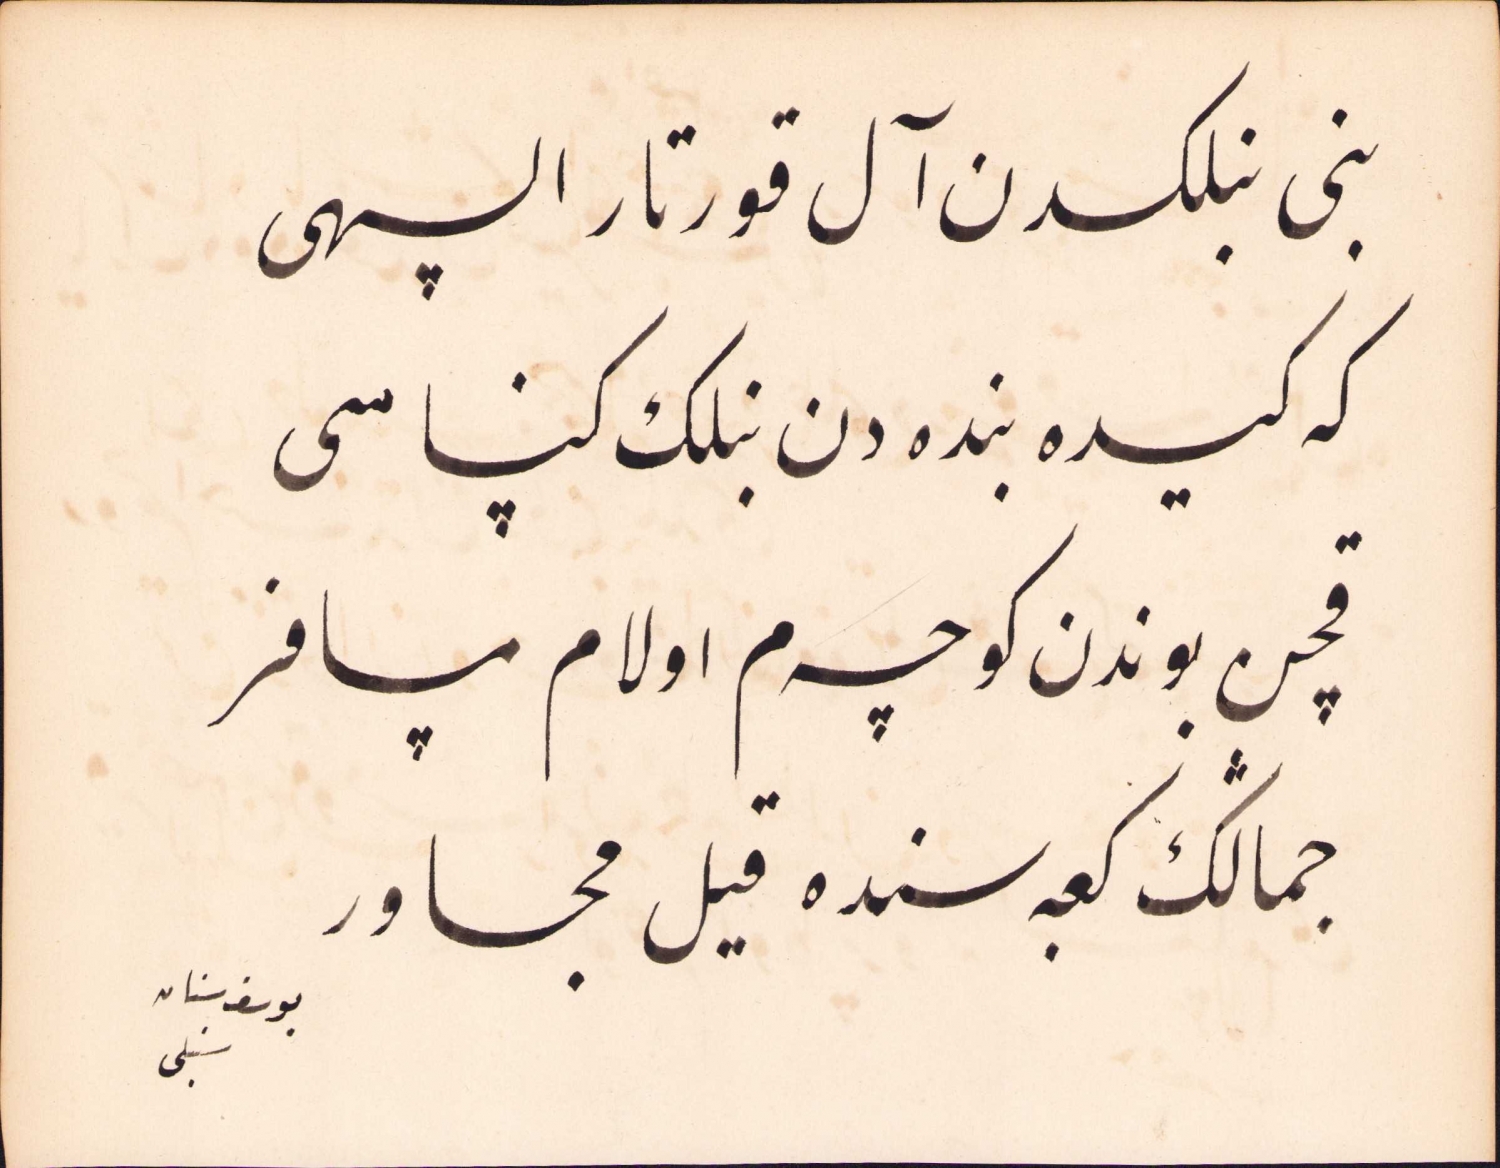 بنی بنلکدن آل قورتار الـهی
که کیده بنده دن بنلک کناسی
قچن بوندن کوچه م اولام مسافر
جمالڭ کعبه سنده قیل مجاور
یوسف سنان
سنبلی